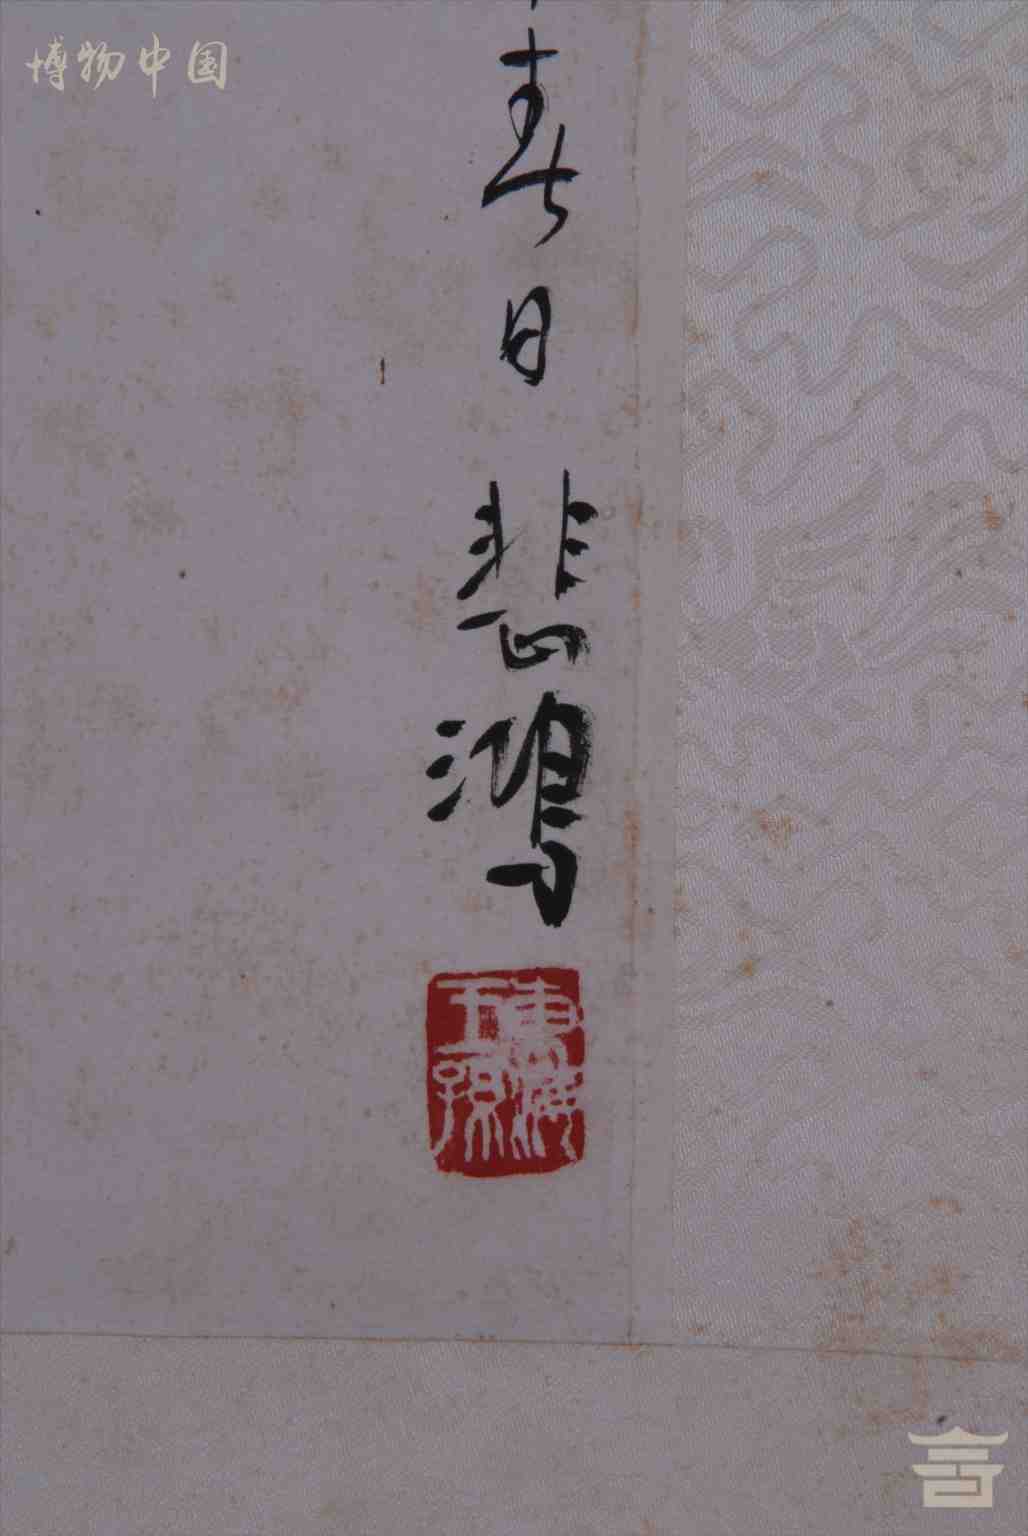 博物中国
春日悲鴻
東海王孫